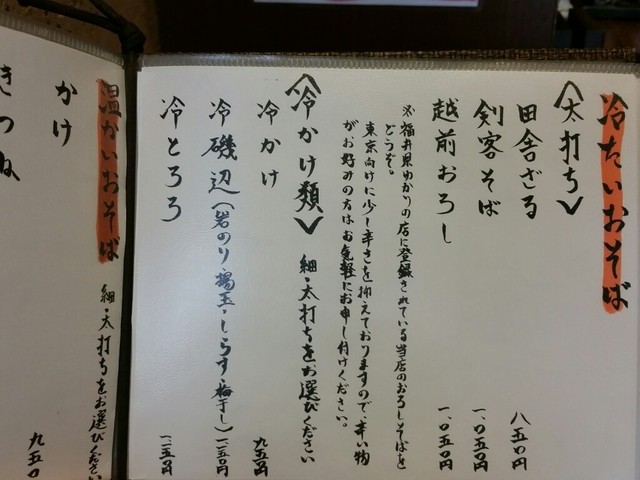 冷たいおそば
〈太打ち〉
田舎ざる 八五〇円
剣客そば 一、〇五〇円
越前おろし 一、〇五〇円
※福井県ゆかりの店に登録されている当店のおろしそばを
どうぞ。
東京向けに少し辛さを抑えておりますので、辛い物
がお好みの方はお気軽にお申し付けください。
〈冷かけ類〉 細・太打ちをお選びください
冷かけ 九五〇円
冷磯辺(岩のり・揚玉・しらす・梅干し) 一一五〇円
冷とろろ 一一五〇円
温かいおそば 細・太打ちをお選びください
かけ 九五〇
きつね